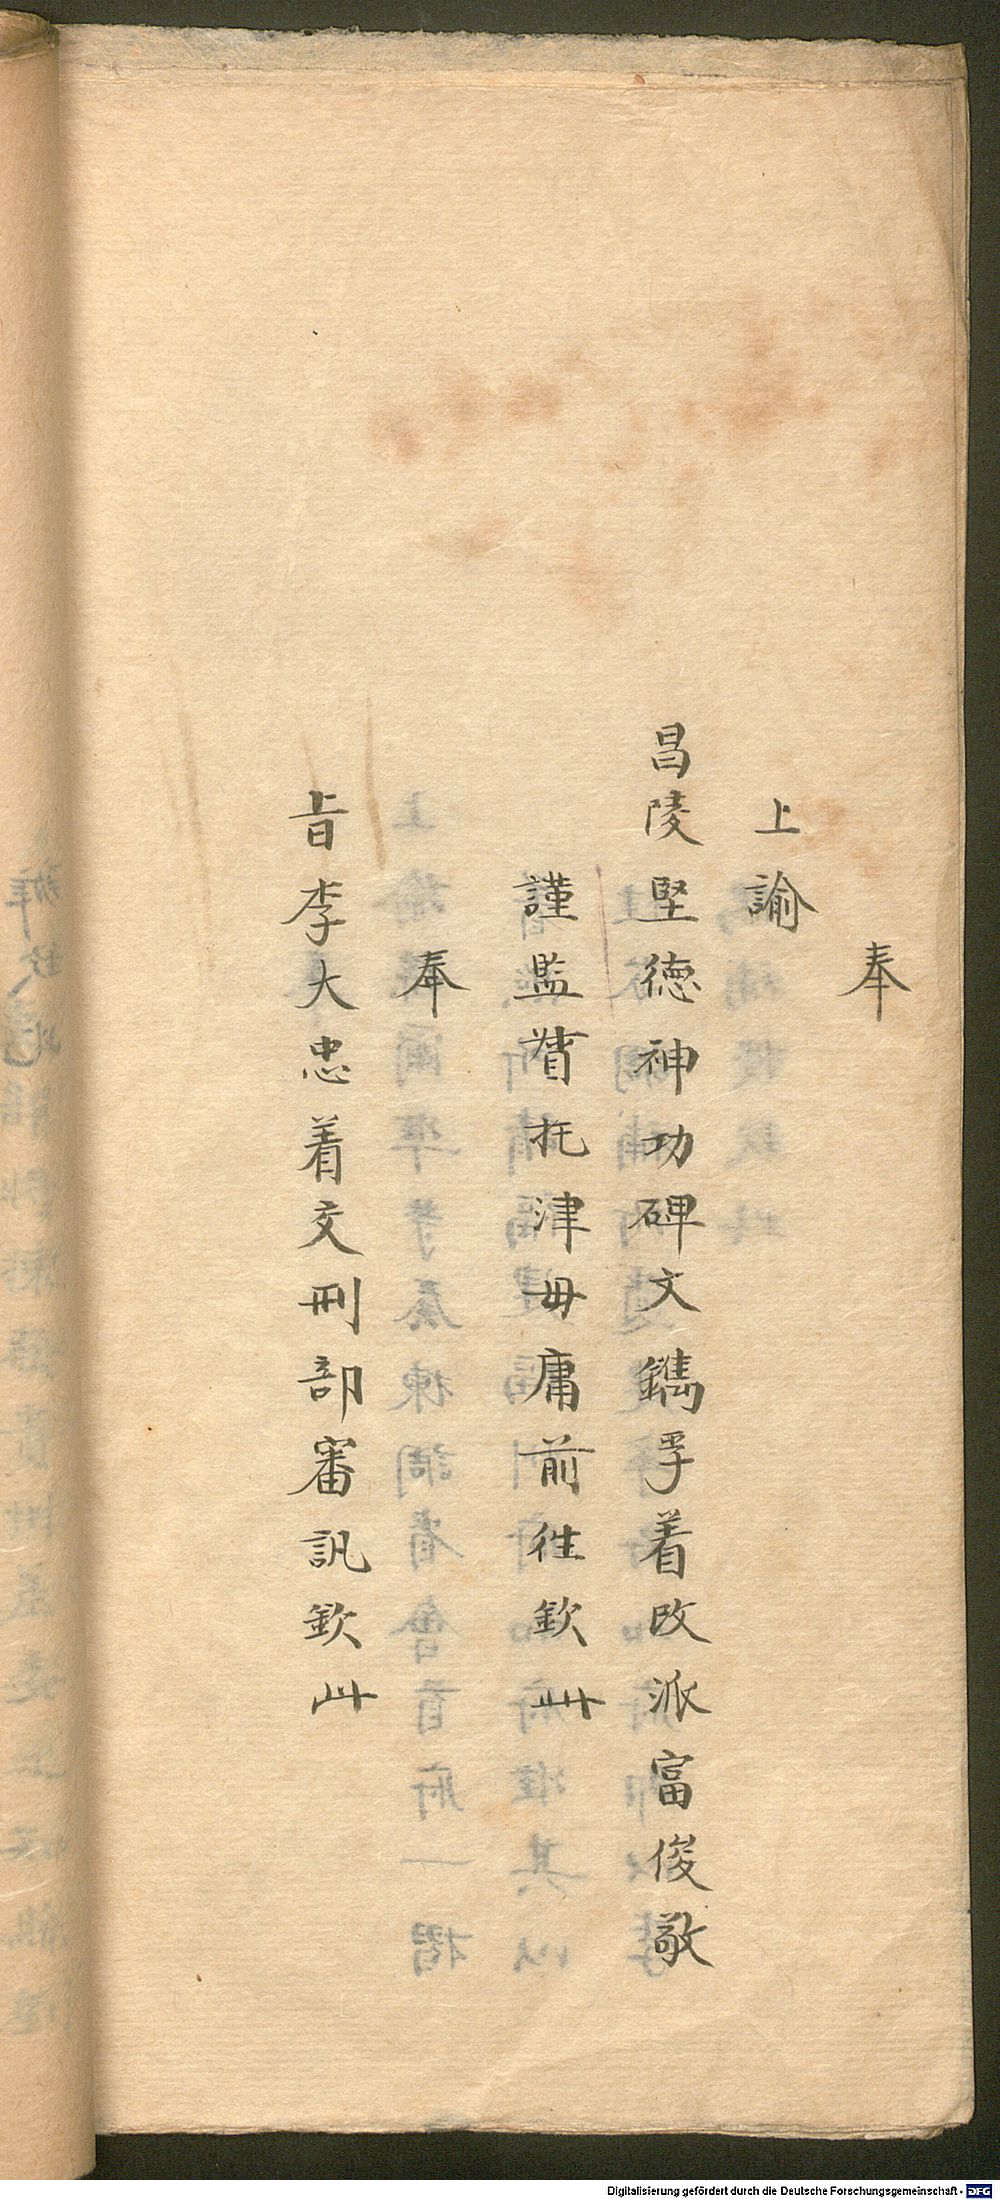 奉
上諭
昌陵聖德神功碑文鐫字着改派富俊敬
謹監督托津毋庸前往欽此
奉
旨李大忠着交刑部審訊欽此
Digitalisierung gefördert durch die Deutsche Forschungsgemeinschaft - DFG